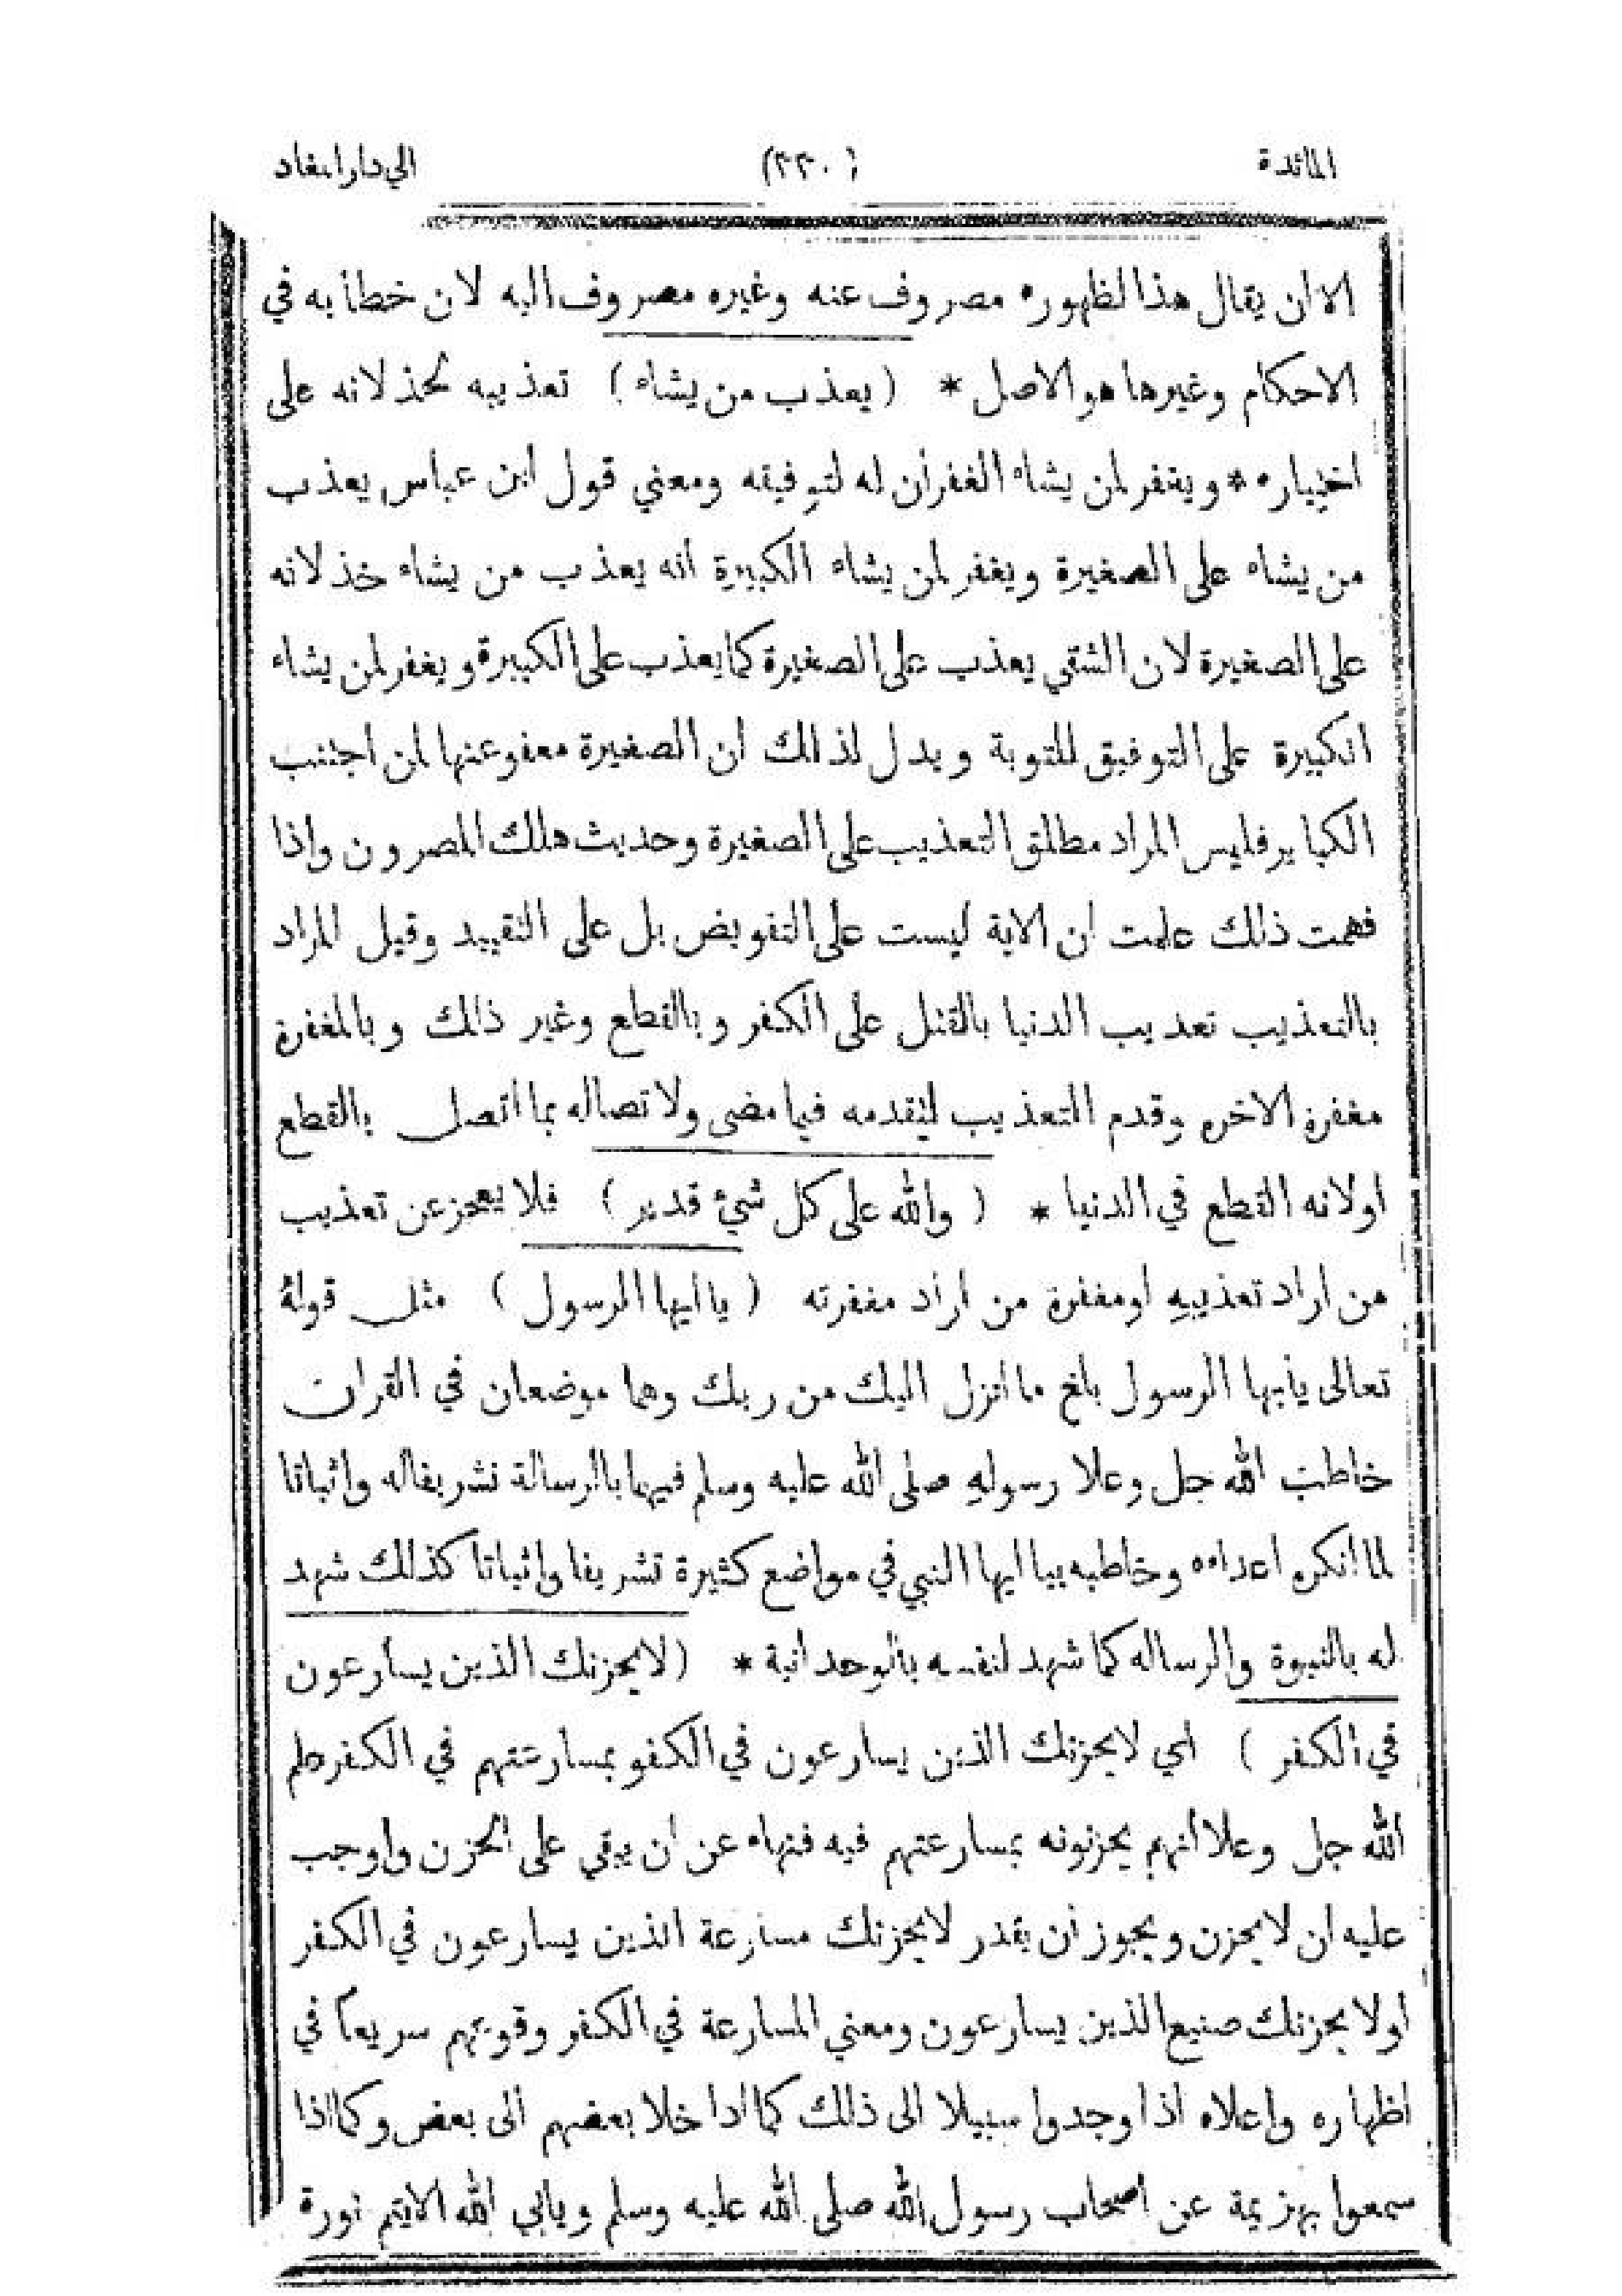 المائدة (٣٣٠) الي دار المعاد
الا ان يقال هذا لظهوره مصروف عنه وغيره مصروف اليه لان خطابه في
الاحكام وغيرها هو الاصل * (يعذب من يشاء) تعذيبه لخذلانه على
اختياره * ويغفر لمن يشاء الغفران له لتوفيقه ومعني قول ابن عباس يعذب
من يشاء على الصغيرة ويغفر لمن يشاء الكبيرة انه يعذب من يشاء خذلانه
على الصغيرة لان الشقي يعذب على الصغيرة كما يعذب على الكبيرة ويغفر لمن يشاء
الكبيرة على التوفيق للتوبة ويدل لذلك ان الصغيرة معفو عنها لمن اجتنب
الكباير فليس المراد مطلق التعذيب على الصغيرة وحديث هلك المصرون واذا
فهمت ذلك علمت ان الاية ليست على التفويض بل على التقييد وقيل المراد
بالتعذيب تعذيب الدنيا بالقتل على الكفر وبالقطع وغير ذلك وبالمغفرة
مغفرة الاخرة وقدم التعذيب لتقدمه فيما مضى ولاتصاله بما اتصل بالقطع
اولانه القطع في الدنيا * (والله على كل شيء قدير) فلا يعجز عن تعذيب
من اراد تعذيبه اومغفرة من اراد مغفرته (يا ايها الرسول) مثل قوله
تعالى يأيها الرسول بلغ ما انزل اليك من ربك وهما موضعان في القران
خاطب الله جل وعلا رسوله صلى الله عليه وسلم فيهما بالرسالة تشريفا له واثباتا
لما انكره اعداءه وخاطبه بيا ايها النبي في مواضع كثيرة تشريفا واثباتا كذلك شهد
له بالنبوة والرساله كما شهد لنفسه بالوحدانية * (لا يحزنك الذين يسارعون
في الكفر) اي لا يحزنك الذين يسارعون في الكفو بمسارعتهم في الكفر علم
الله جل وعلا انهم يحزنونه بمسارعتهم فيه فنهاه عن ان يبقي على الحزن واوجب
عليه ان لا يحزن ويجوز أن يقدر لا يحزنك مسارعة الذين يسارعون في الكفر
اولا يحزنك صنيع الذين يسارعون ومعني المسارعة في الكفر وقوعهم سريعا في
اظهاره واعلاه اذا وجدوا سبيلا الى ذلك كما اذا خلا بعضهم الى بعض وكما اذا
سمعوا بهزيمة عن اصحاب رسول الله صلى الله عليه وسلم ويابي الله الا يتم نورة